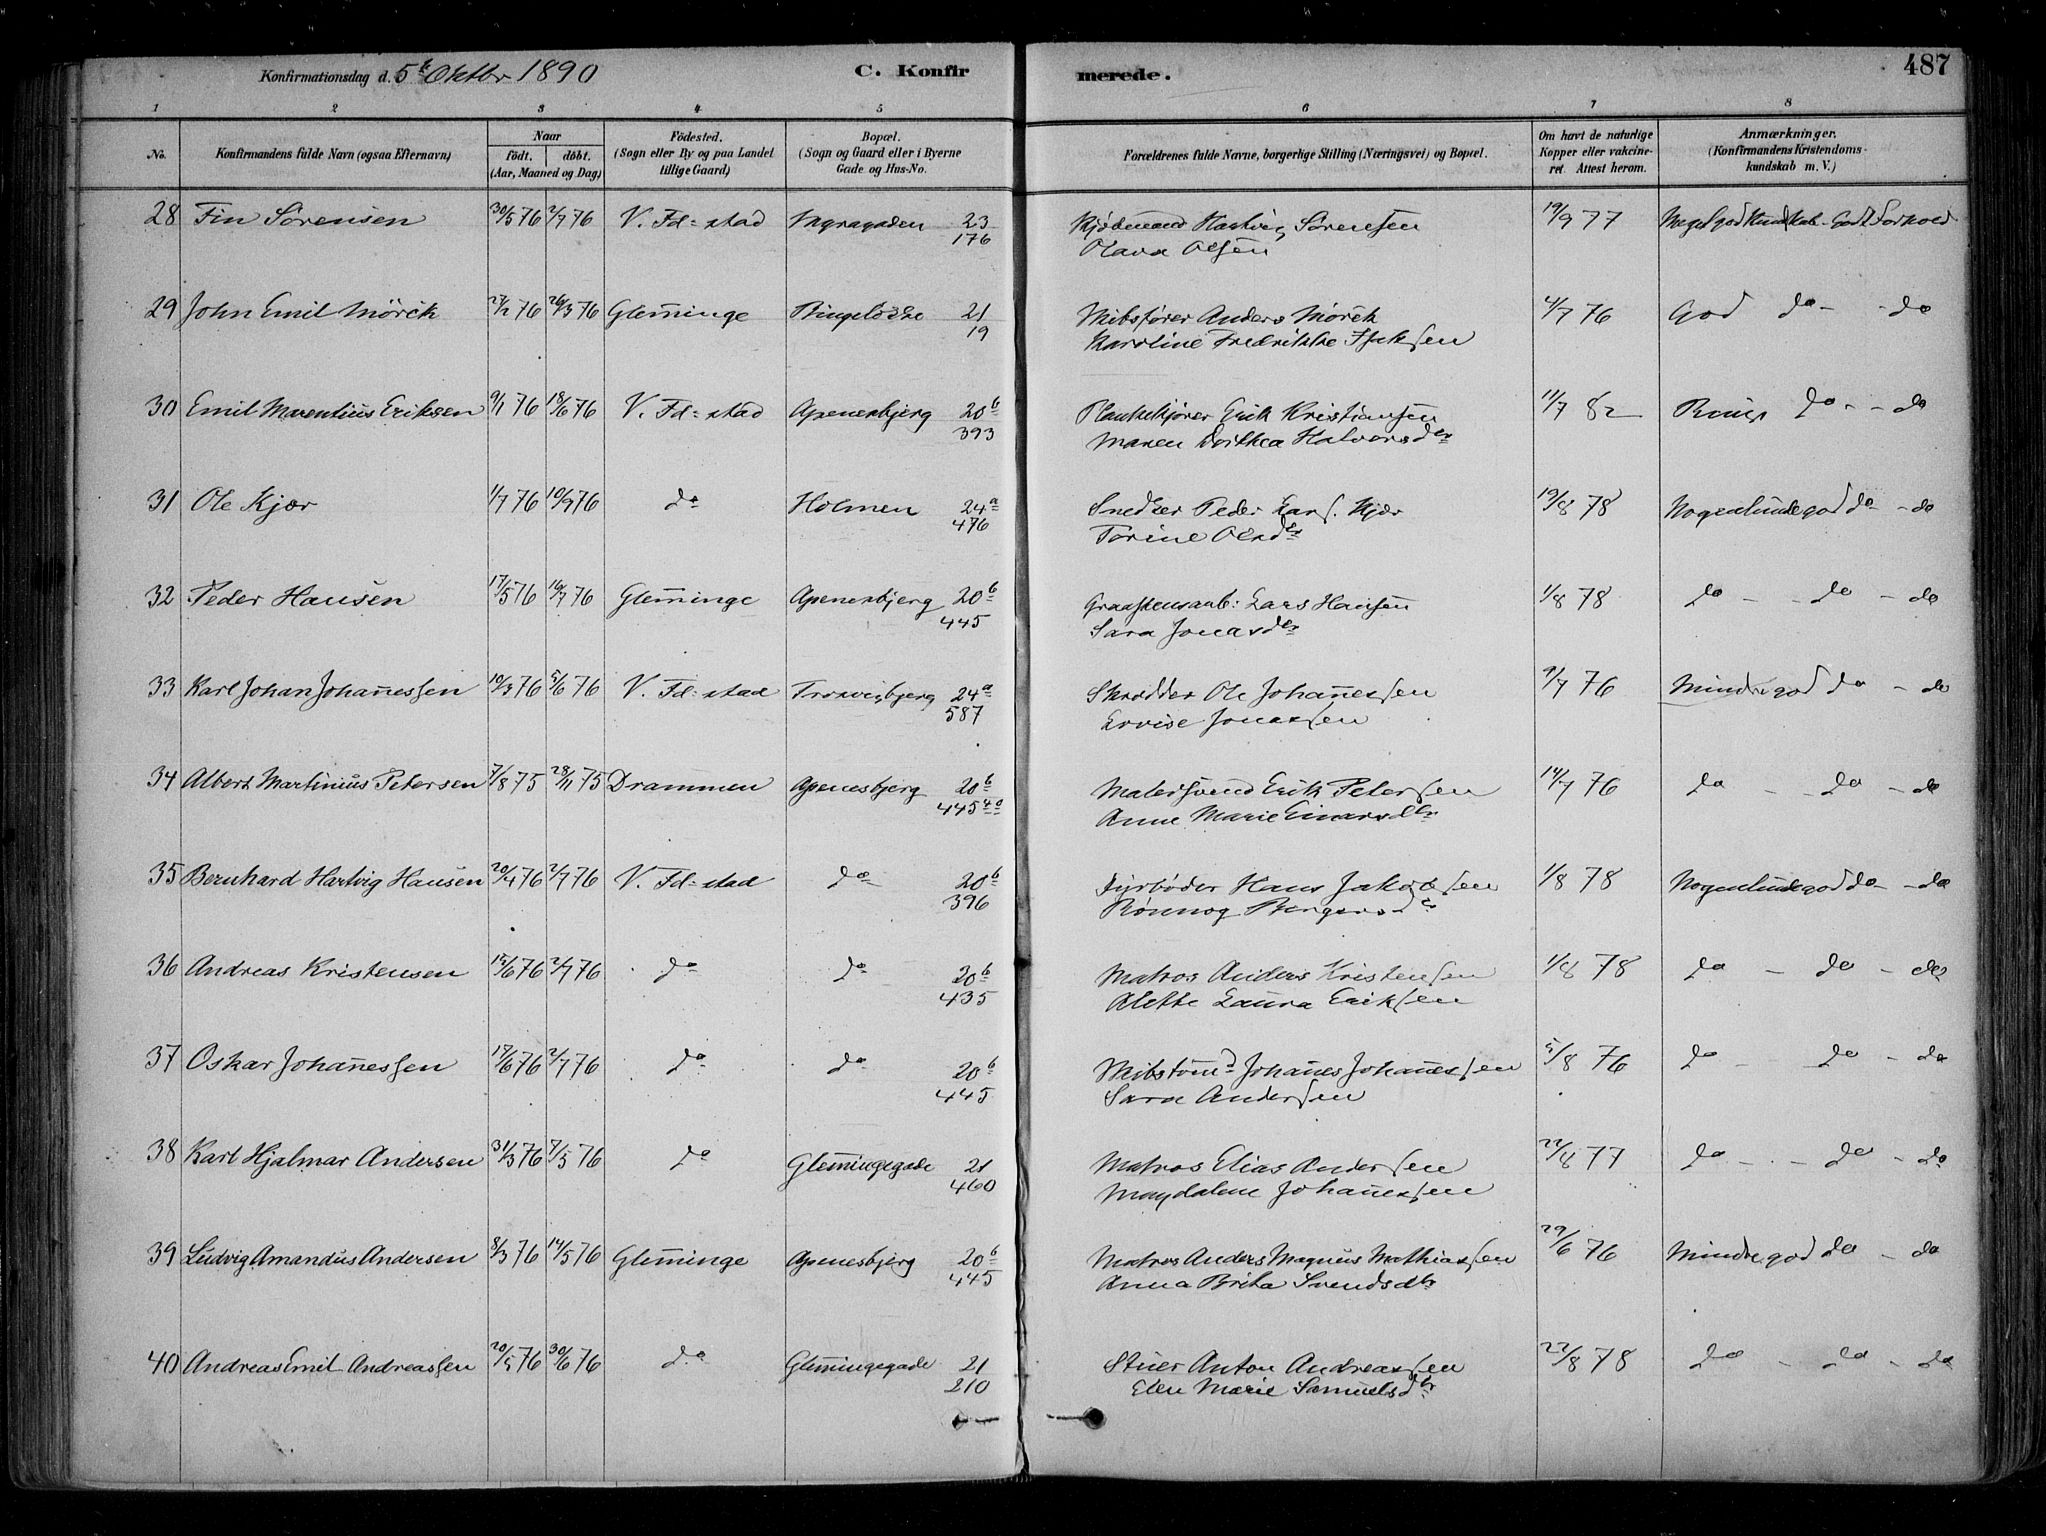 Konfirmationsdag d. 5t Oktbr 1890
C. Konfirmerede.
487
1 2 3 4 5 6 7 8
No.
Konfirmandens fulde Navn (ogsaa Efternavn)
Naar
födt. döbt.
(Aar, Maaned og Dag)
Födested.
(Sogn eller By og paa Landet
tillige Gaard)
Bopæl.
(Sogn og Gaard eller i Byerne
Gade og Hus-No.
Forældrenes fulde Navne, borgerlige Stilling (Næringsvei) og Bopæl.
Om havt de naturlige
Kopper eller vakcine-
ret. Attest herom.
Anmærkninger.
(Konfirmandens Kristendoms-
kundskab m. V.)
28 Fin Sörensen 30/5 76 2/7 76 V. Fd=stad 23 Hartvig Sörensen 19/9 77 Meget god Kundskab - Godt Forhold
176 Olava Olsen
29 John Emil Mörck 27/1 76 26/3 76 Gleminge 21 Anders Mörck 4/7 76 God do - do
19 Karoline Fredrikke Isaksen
30 Emil Marentius Eriksen 9/1 76 18/6 76 V. Fd=stad Apenesbjerg 20b Plankekjörer Erik Kristiansen 11/7 82 do - do
393 Maren Dorthea Halvorsdtr
31 Ole Kjær 1/7 76 10/9 76 do Holmen 24a Snedker Peder Lars. Kjær 19/8 78 Nogenlunde god do - do
476 Torine Olsdtr
32 Peder Hansen 17/5 76 16/7 76 Gleminge Apenesbjerg 20b Graastensarb: Lars Hansen 1/8 78 do - do - do
445 Sara Jonasdtr
33 Karl Johan Johanessen 10/3 76 5/6 76 V. Fd=stad Trosvigbjerg 24a Skrædder Ole Johanessen 9/7 76 Mindre god do - do
587 Lovise Jonassen
34 Albert Martinius Petersen 7/8 75 28/11 75 Drammen Apenesbjerg 20b Malersvend Erik Petersen 14/7 76 do - do - do
445 40 Anne Marie Einarsdtr
35 Bernhard Hartvig Hansen 20/4 76 2/7 76 V. Fd=stad do 20b Fyrböder Hans Jakobsen 1/8 78 Nogenlunde god do - do
396 Rönnog
36 Andreas Kristensen 15/6 76 2/7 76 do do 20b Matros Anders Kristensen 1/8 78 do - do - do
435 Alette Laura Eriksen
37 Oskar Johanessen 17/6 76 2/7 76 do do 20b Skibstömd Johanes Johanessen 5/8 76 do - do - do
445 Sara Andersen
38 Karl Hjalmar Andersen 31/3 76 7/5 76 do Glemingegade 21 Matros Elias Andersen 22/8 77 do - do - do
460 Magdalene Johanessen
39 Ludvig Amandus Andersen 8/3 76 14/5 76 Gleminge Apenesbjerg 20b Matros Anders Magnus Mathiassen 29/6 76 Mindre god do - do
445 Anna Brita Svendsdtr
40 Andreas Emil Andreassen 20/5 76 30/6 76 do Glemingegade 21 Stuer Anton Andreassen 22/8 78 do - do - do
210 Elen Marie Samuelsdtr